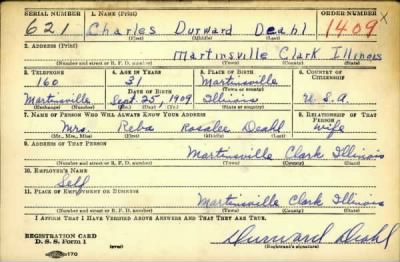 SERIAL NUMBER 1. NAME (Print) ORDER NUMBER
621 Charles Durward Deahl 1409 X
(First) (Middle) (Last)
2. ADDRESS (Print)
Martinsville Clark Illinois
(Number and street or R. F. D. number) (Town) (County) (State)
3. TELEPHONE 4. AGE IN YEARS 5. PLACE OF BIRTH 6. COUNTRY OF CITIZENSHIP
160 31 Martinsville
DATE OF BIRTH (Town or county)
Martinsville Sept. 25, 1909 Illinois U.S.A.
(Exchange) (Number) (Mo.) (Day) (Yr.) (State or country)
7. NAME OF PERSON WHO WILL ALWAYS KNOW YOUR ADDRESS 8. RELATIONSHIP OF THAT PERSON
Mrs. Reba Rosalee Deahl Wife
(Mr., Mrs., Miss) (First) (Middle) (Last)
9. ADDRESS OF THAT PERSON
Martinsville Clark Illinois
(Number and street or R. F. D. number) (Town) (County) (State)
10. EMPLOYER'S NAME
Self
11. PLACE OF EMPLOYMENT OR BUSINESS
Martinsville Clark Illinois
(Number and street or R. F. D. number) (Town) (County) (State)
I AFFIRM THAT I HAVE VERIFIED ABOVE ANSWERS AND THAT THEY ARE TRUE.
REGISTRATION CARD
D. S. S. Form 1 (over) Durward Deahl
(Registrant's signature)